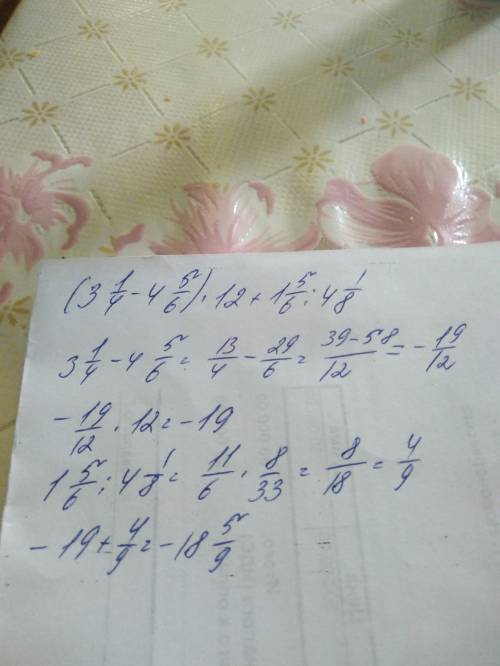 (3 1/4 - 4 5/6) · 12 + 1 5/6 : 4 1/8
3 1/4 - 4 5/6 = 13/4 - 29/6 = 39-58/12 = - 19/12
- 19/12 · 12 = -19
1 5/6 : 4 1/8 = 11/6 · 8/33 = 8/18 = 4/9
- 19 + 4/9 = -18 5/9